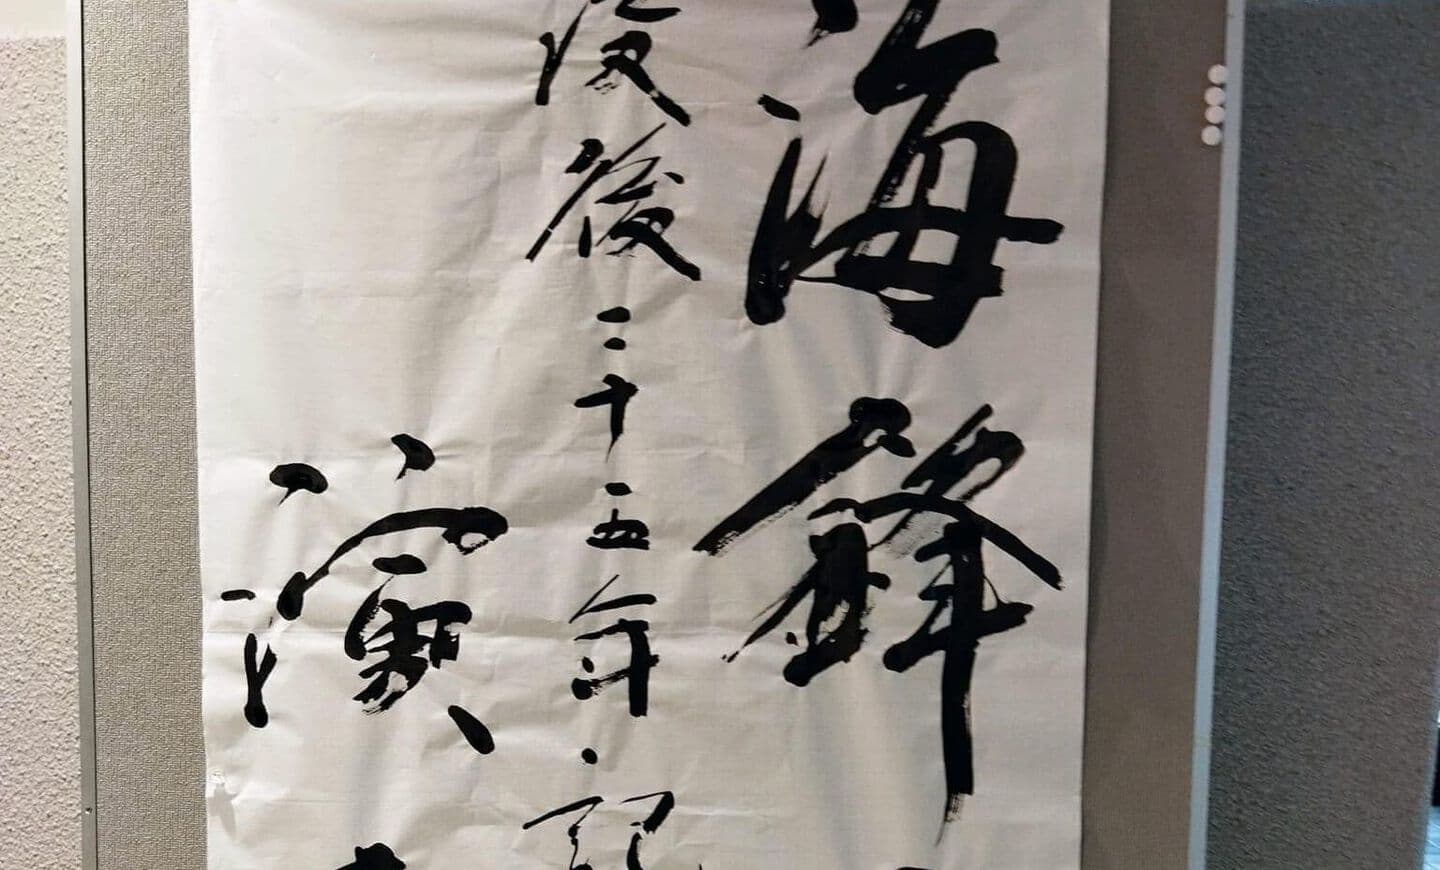 海鋒
没後二十五年·記
演